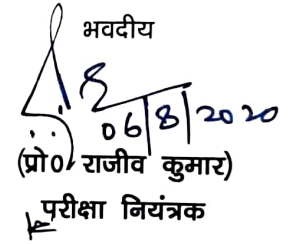 भवदीय
06/8/2020
(प्रो0 राजीव कुमार)
परीक्षा नियंत्रक